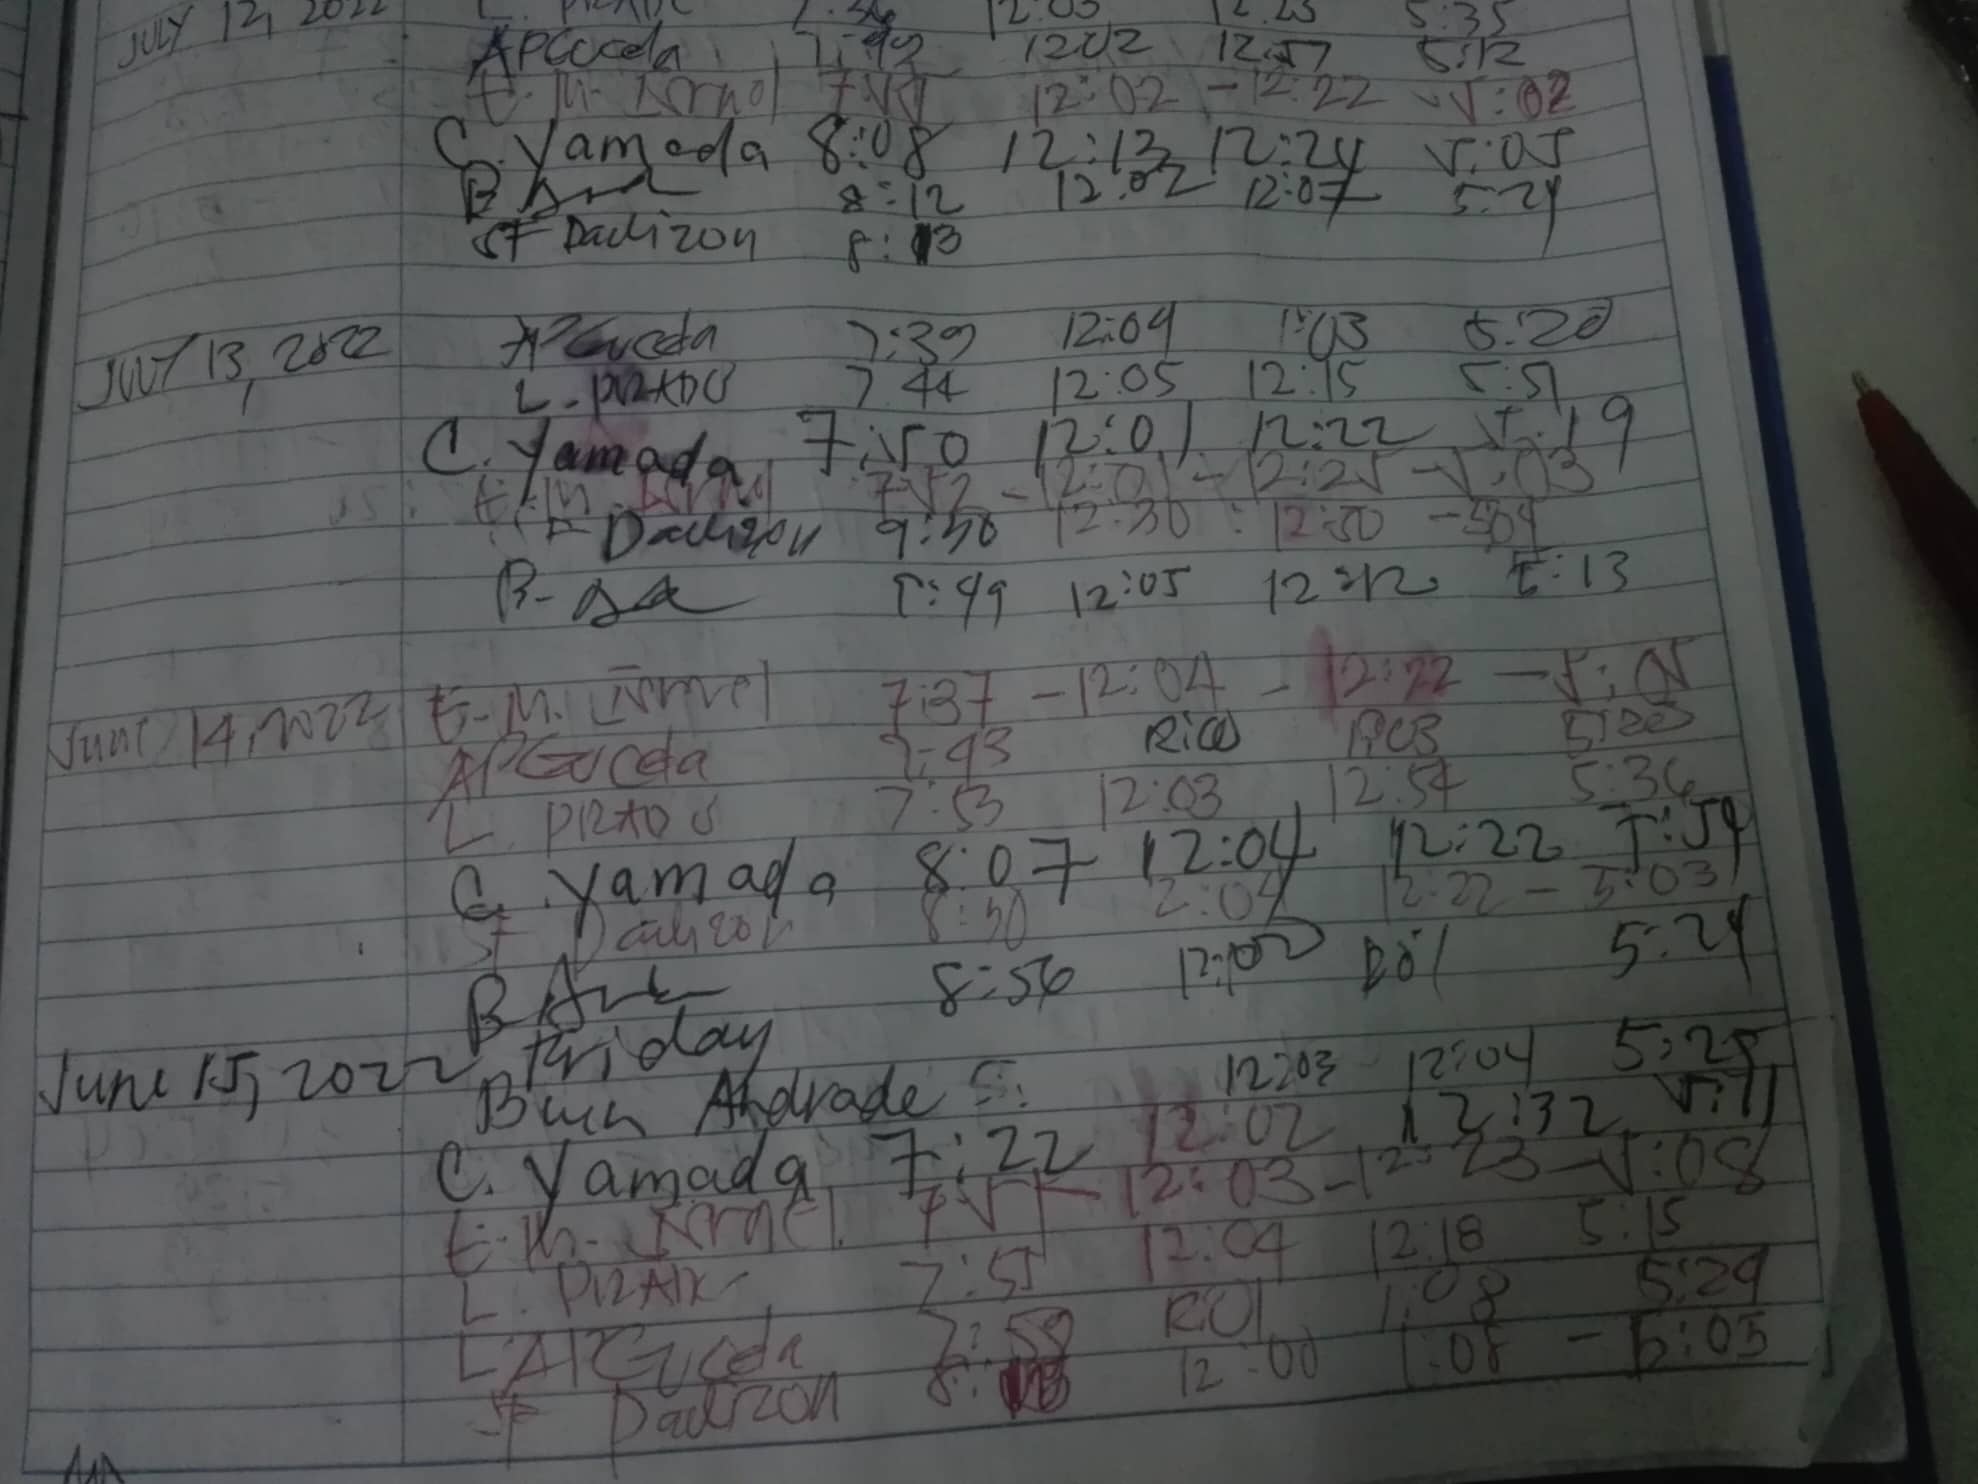 JULY 12, 2022 12:03 12:23 5:35
APGuceda 7:42 12:02 12:57 5:12
E.M. 12:02 - 12:22 - 5:02
C. Yamada 8:08 12:13 12:24 5:05
B 8:12 12:02 12:07 5:24
SF Dadizon 8:13
JULY 13, 2022 APGuceda 7:39 12:04 1:03 5:20
L. PRADO 7:44 12:05 12:15 5:51
C. Yamada 7:50 12:01 12:22 5:19
E.M. 7:52 - 12:01 - 12:25 - 5:03
SF Dadizon 9:30 12:30 : 12:50 - 504
B. 12:05 12:12 5:13
June 14, 2022 E.M. 7:37 - 12:04 - 12:22 - 5:05
APGuceda 7:43
L. PRADO 7:53 12:03 12:54 5:36
C. Yamada 8:07 12:04 12:22 5:54
SF Dadizon 8:30 2:04 12:22 - 5:03
B 8:56 5:24
June 15, 2022 Friday
Andrade 5: 12:03 12:04 5:25
C. Yamada 7:22 12:02 12:32 5:11
E.M. 12:03 - 12:23 - 5:08
L. 7:55 12:04 12:18 5:15
APGuceda 7:59 1:08 5:29
SF Dadizon 12:00 1:08 - 5:05